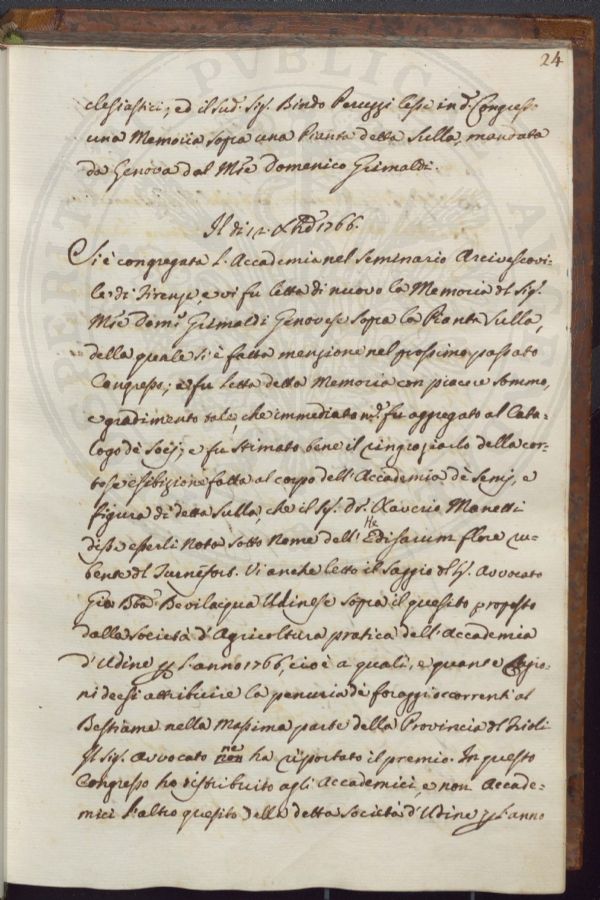 24
clesiastici, ed il sud.º Sig.r Bindo Peruzzi lesse in d.º Congresso
una Memoria sopra una Pianta detta Sulla, mandata
da Genova dal M.se Domenico Grimaldi.
Il dì 12. Xbre 1766.
Si è congregata l'Accademia nel Seminario Arcivescovi=
le di Firenze, e vi fu letta di nuovo la Memoria del Sig.r
M.se Dom.co Grimaldi Genovese sopra la Pianta Sulla,
della quale si è fatta menzione nel prossimo passato
Congresso; e fu letta detta Memoria con piacere sommo,
e gradimento tale, che immediatam.e fu aggregato al Cata=
logo de Socij; e fu stimato bene il ringraziarlo della cor=
tese esibizione fatta al corpo dell'Accademia de Semj, e
figura di detta Sulla, che il Sig. D.r Xaverio Manetti
disse esserli nota sotto nome dell' Hedisarum flore ru=
bente del Turnefort. Vi anche letto il Saggio del S.r Avvocato
Gio Bta Bevilacqua Udinese sopra il quesito proposto
dalla Società d'Agricoltura pratica dell'Accademia
d'Udine p l'anno 1766, cioè a quali, e quante Cagio=
ni deesi attribuire la penuria de foraggi occorrenti al
Bestiame nella Massima parte della Provincia del Frioli
Il Sig.r Avvocato ne ha riportato il premio. In questo
Congresso ha distribuito agli Accademici, e non Accade=
mici l'altro quesito della detta Società d'Udine p l'anno